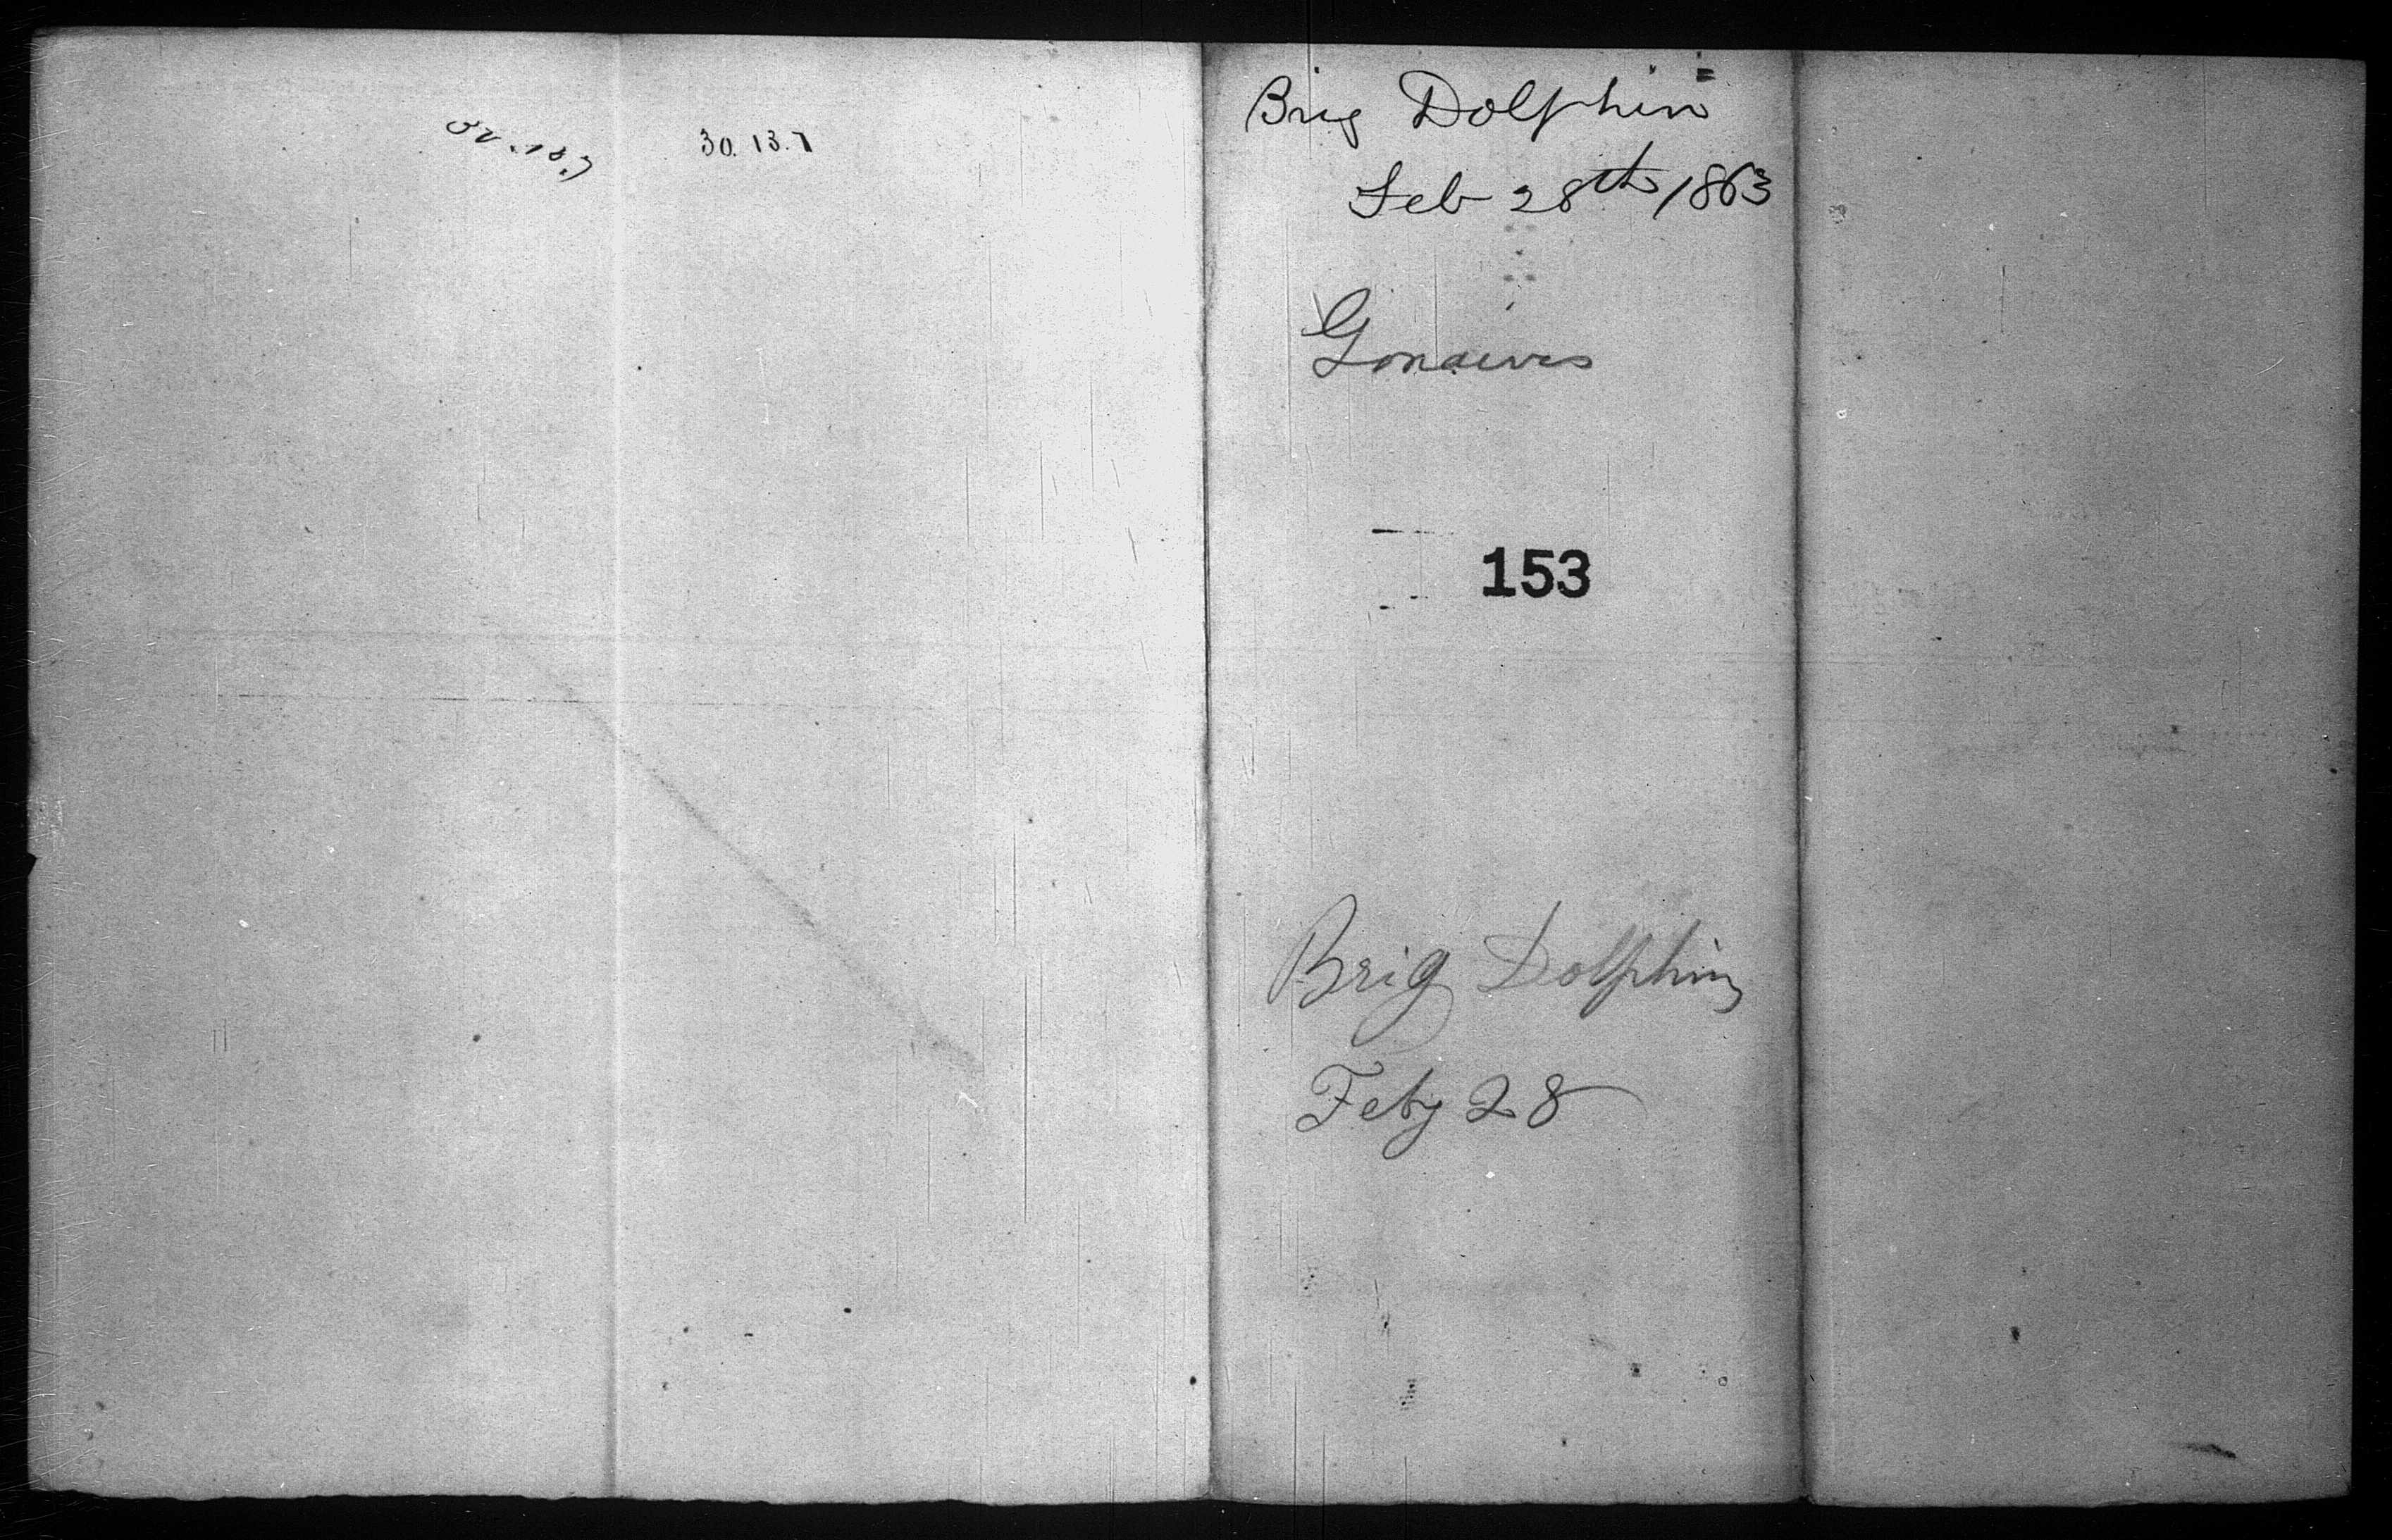 30.13.7
Brig Dolphin
Feb 28th 1863
Gonaives
153
Brig Dolphin
Feby 28